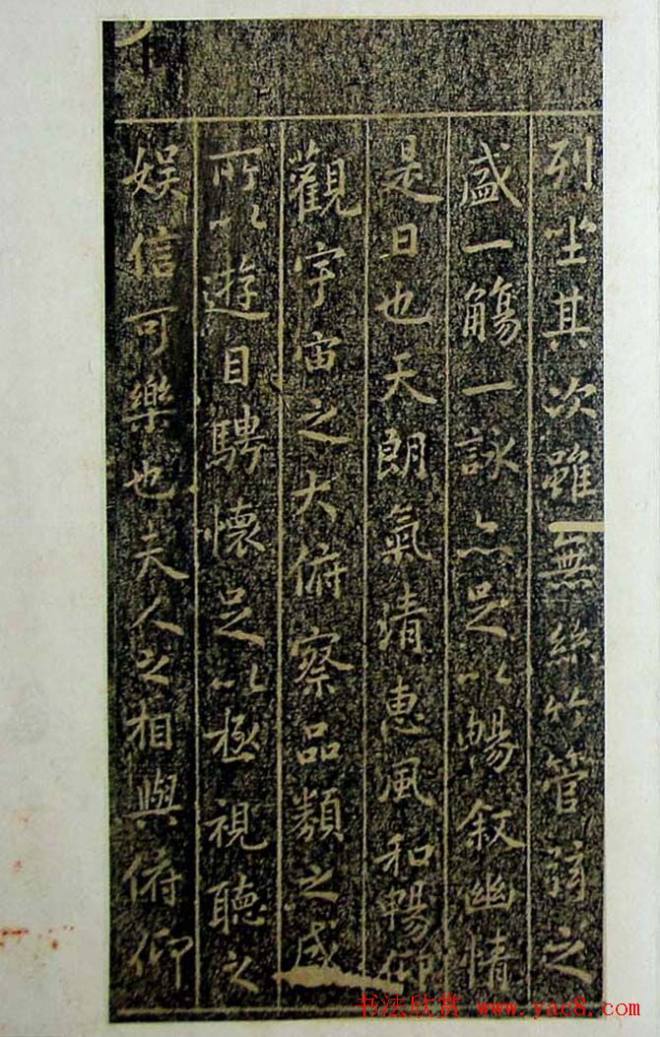 列坐其次雖無絲竹管絃之
盛一觴一詠亦足以暢敘幽情
是日也天朗氣清惠風和暢仰
觀宇宙之大俯察品類之盛
所以遊目騁懷足以極視聽之
娛信可樂也夫人之相與俯仰
书法欣赏 www.yac8.com